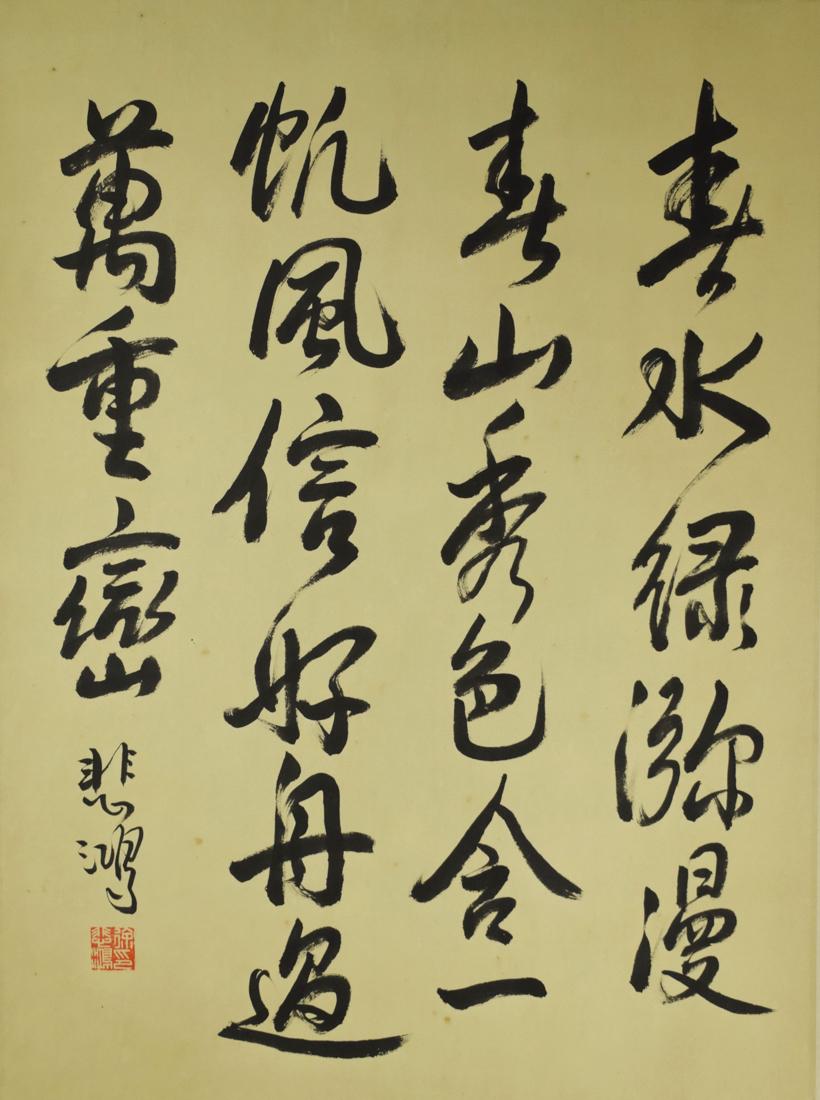 春水绿瀰漫
春山秀色含一
帆風信好舟過
萬重巒
悲鴻
徐悲鴻印